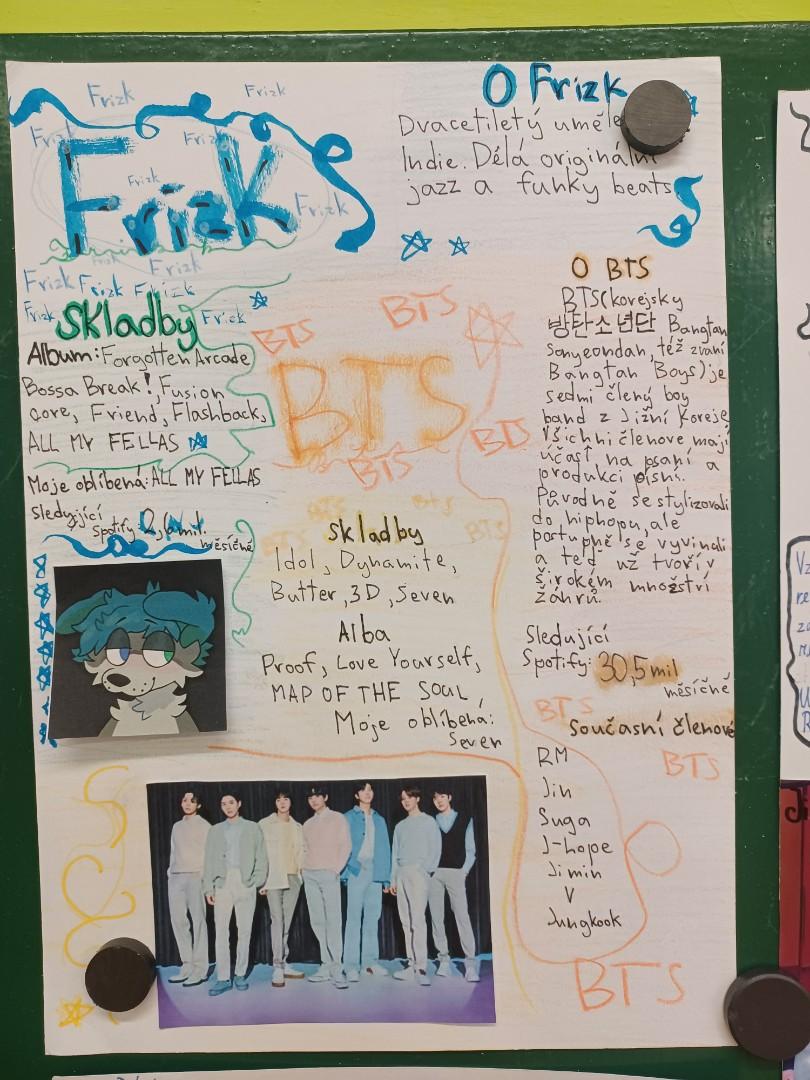 Frizk
Frizk
Frizk
Frizk
Frizk
Frizk
Frizk
Frizk
Frizk Frizk Frizk
Frizk
Frizk
O Frizk
Dvacetiletý uměle
Indie. Dělá originální
jazz a funky beats
Skladby
Album: Forgotten Arcade
Bossa Break!, Fusion
core, Friend, Flashback,
ALL MY FELLAS
Moje oblíbená: ALL MY FELLAS
Sledující
Spotify: 2,6 mil.
měsíčně
BTS
BTS
BTS
BTS
BTS
BTS
BTS
BTS
Skladby
Idol, Dynamite,
Butter, 3D, Seven
Alba
Proof, Love Yourself,
MAP OF THE SOUL
Moje oblíbená:
Seven
O BTS
BTS(korejsky
방탄소년단 Bangtan
Sonyeondan, též zvaní
Bangtan Boys) je
sedmi člený boy
band z Jižní Koreje
Všichni členove mají
účast na psaní a
produkci písní.
Původně se stylizovali
do hiphopu, ale
postupně se vyvinuli
a teď už tvoří v
širokém množství
žánrů.
Sledující
Spotify: 30,5 mil
měsíčně
BTS
Současní členové
BTS
RM
Jin
Suga
J-hope
Jimin
V
Jungkook
BTS